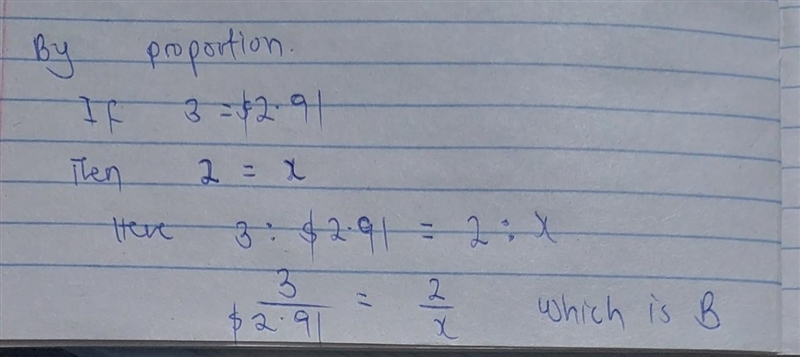 By proportion.
If 3 = $2.91
Then 2 = x
Here 3 : $2.91 = 2 : x
3/$2.91 = 2/x which is B